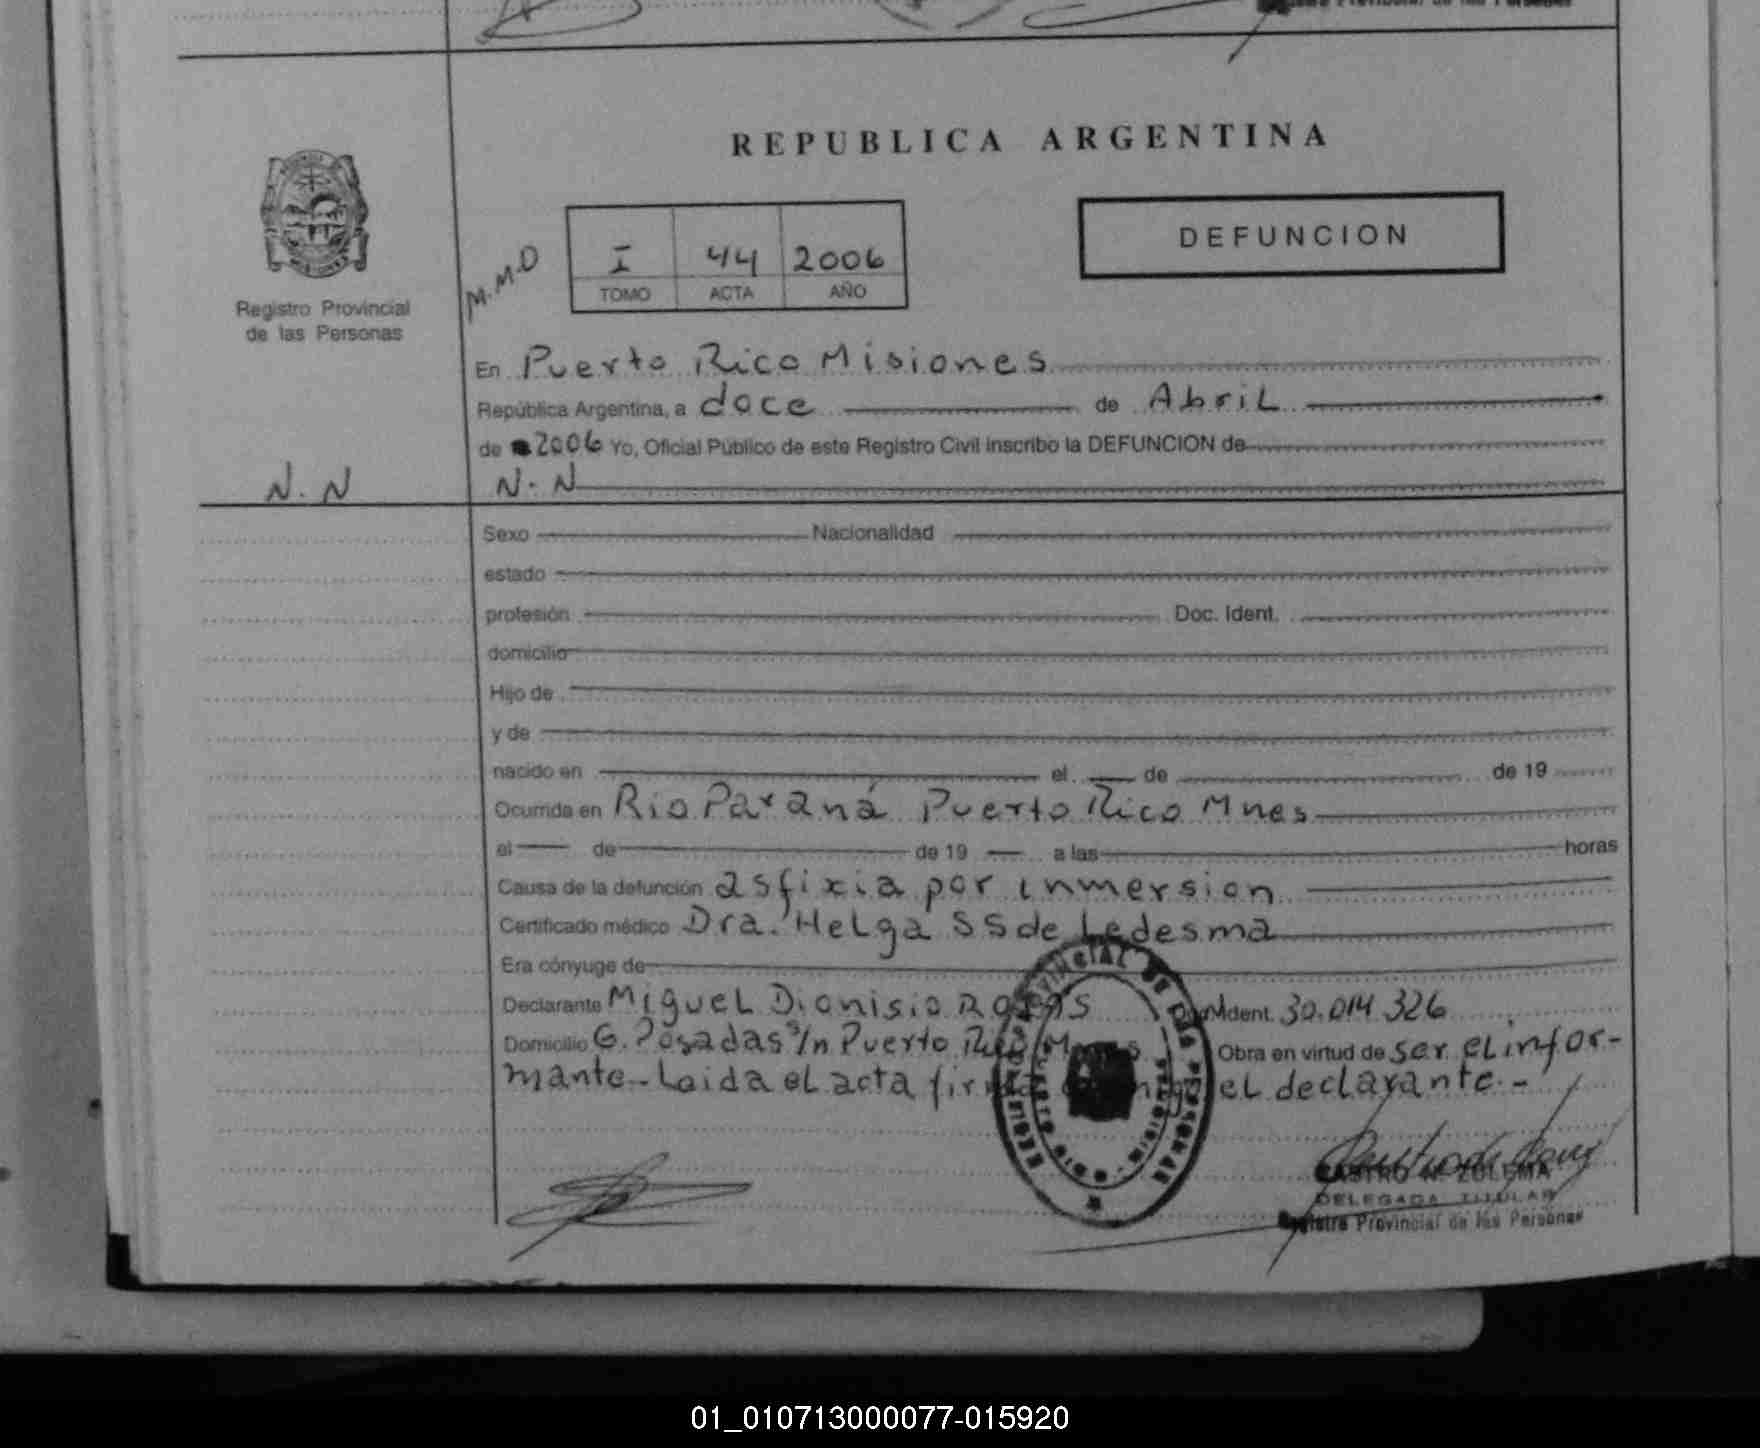 Registro Provincial de las Personas
REPUBLICA ARGENTINA
DEFUNCION
M.M.D
I 44 2006
TOMO ACTA AÑO
Registro Provincial
de las Personas
En Puerto Rico Misiones
República Argentina, a doce de Abril
de 2006 Yo, Oficial Público de este Registro Civil inscribo la DEFUNCION de
N.N N.N
Sexo Nacionalidad
estado
profesión Doc. Ident.
domicilio
Hijo de
y de
nacido en el de de 19
Ocurrida en Rio Paraná Puerto Rico Mnes
el de de 19 a las horas
Causa de la defunción asfixia por inmersion
Certificado médico Dra. Helga SS de Ledesma
Era cónyuge de
Declarante Miguel Dionisio Ident. 30.014.326
Domicilio G. Posadas s/n Puerto Rico Mnes Obra en virtud de ser el infor-
mante.- Leida el acta firma el declarante.-
REGISTRO PROVINCIAL DE LAS PERSONAS
CASTRO N. ZULEMA
DELEGADA TITULAR
Registro Provincial de las Personas
01_010713000077-015920